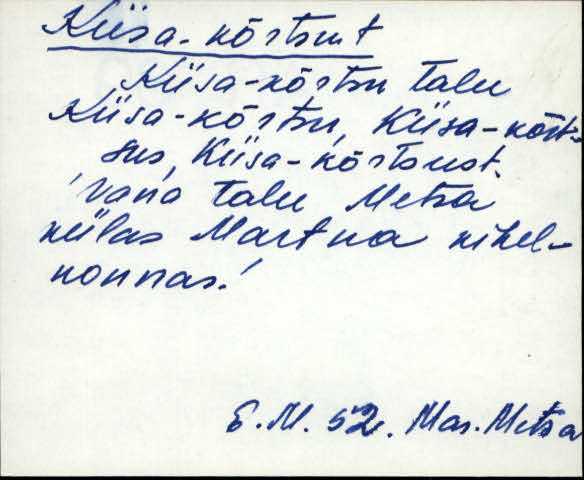 Kiisa-kõrtsmt
Kiisa-kõrtsu talu
Kiisa-kõrtsu, Kiisa-kõrt-
sus, Kiisa-kõrtsust.
'Vana talu Metsa
külas Martna kihel-
konnas.'
E.M. 52. Mar. Metsa